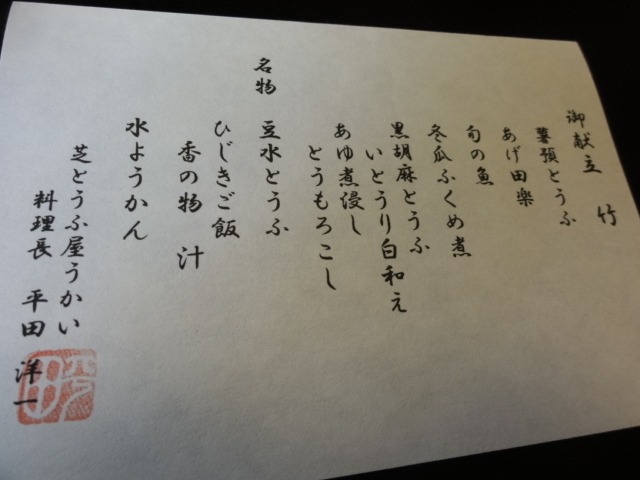 御献立 竹
薯預とうふ
あげ田楽
旬の魚
冬瓜ふくめ煮
黒胡麻とうふ
いとうり白和え
あゆ煮浸し
とうもろこし
名物 豆水とうふ
ひじきご飯
香の物 汁
水ようかん
芝とうふ屋うかい
料理長 平田 洋一